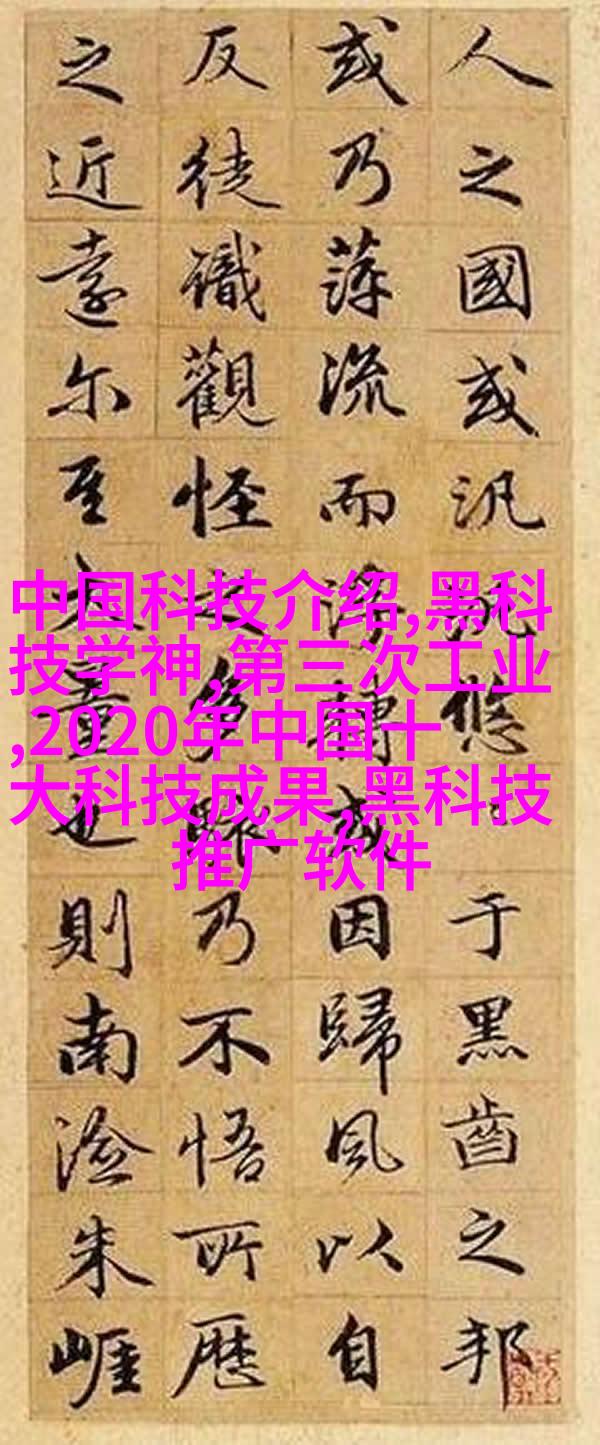 人之國或汎汎悠々于黑齒之邦
或乃萍流而浮轉或因歸風以自
反徒識觀怪之多駭乃不悟所歷
之近遠尔大量也則南澰朱崕
中国科技介绍,黑科
技学神,第三次工业
,2020年中国十
大科技成果,黑科技
推广软件